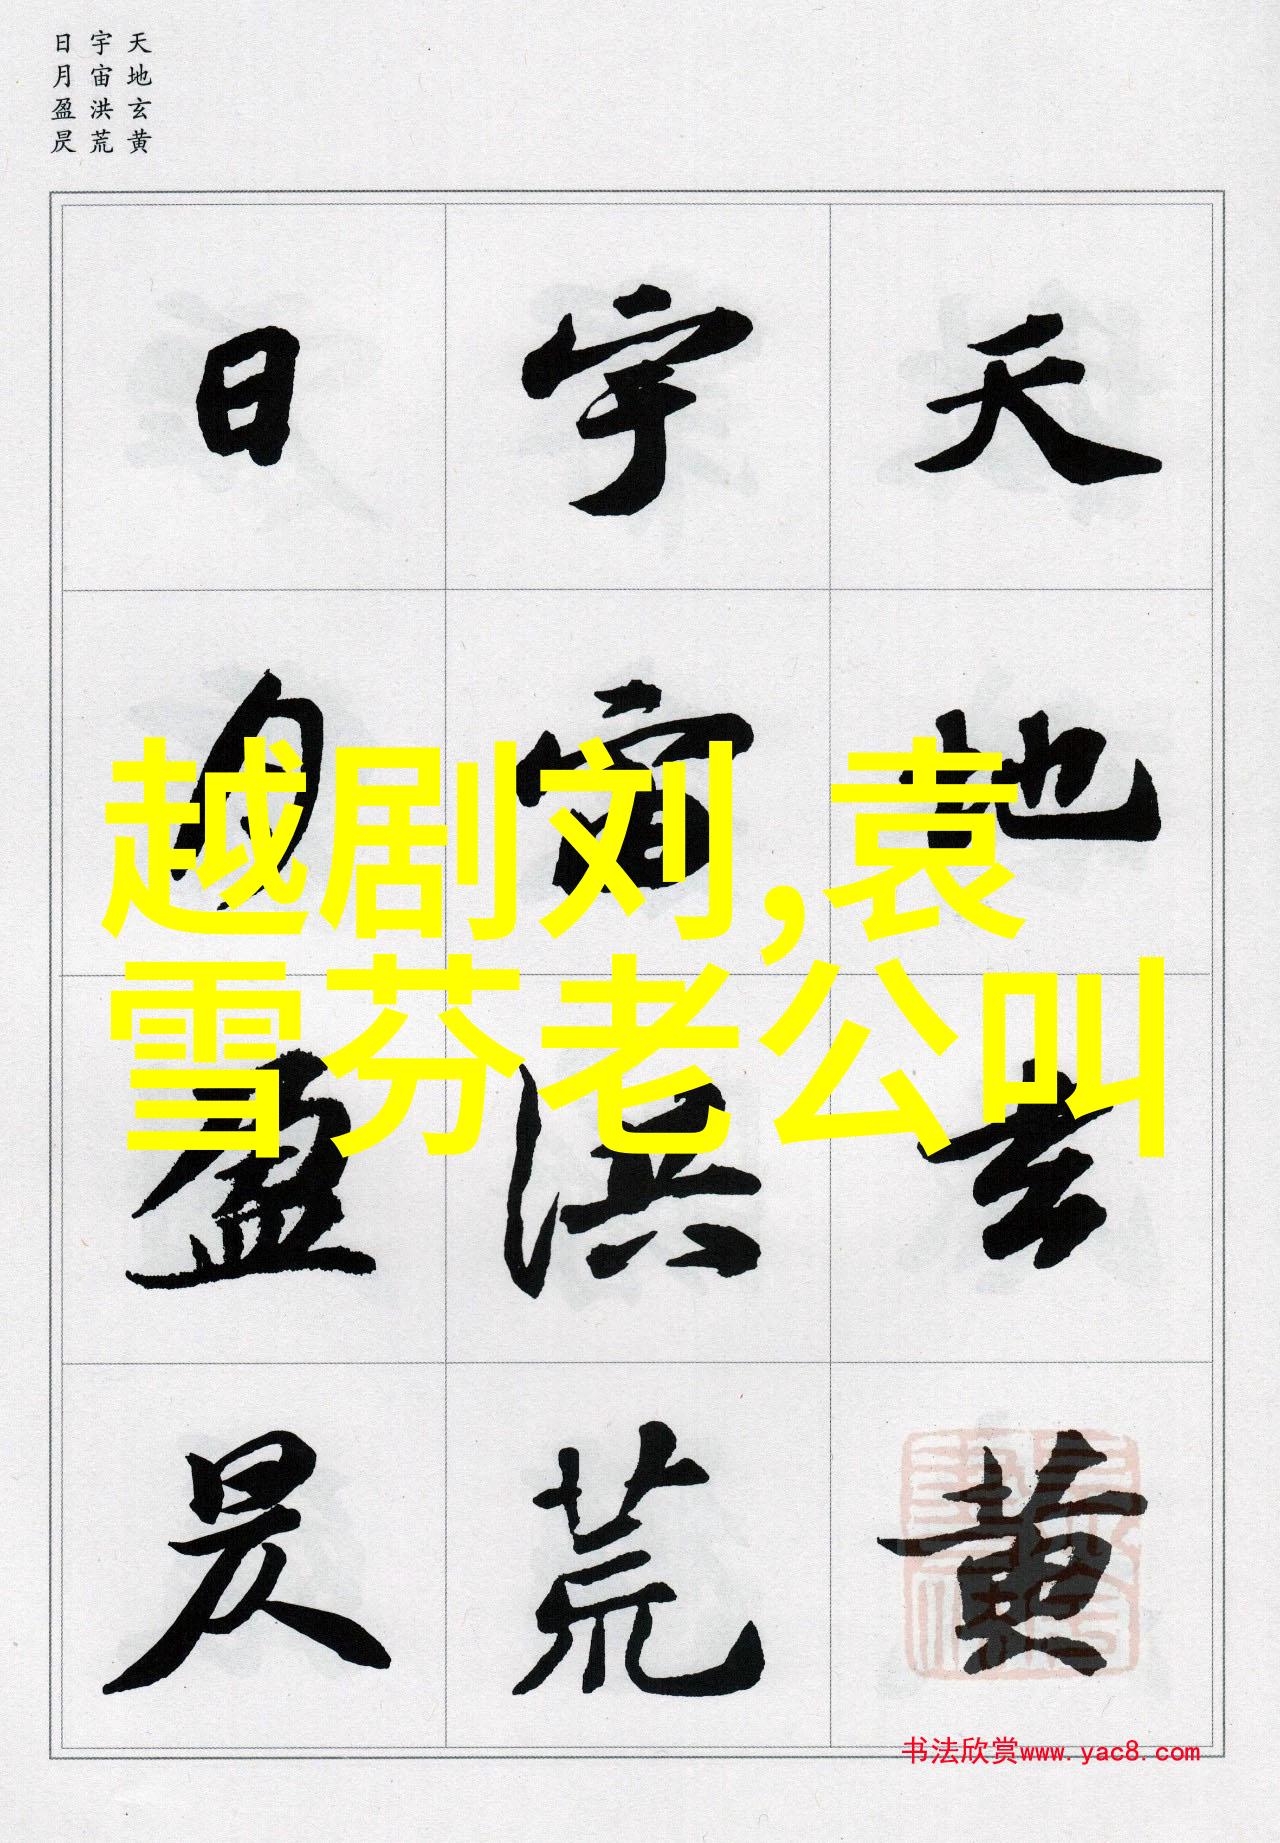 天地玄黄
宇宙洪荒
日月盈昃
天地玄黄
宇宙洪荒
日月盈昃
越剧刘,袁
雪芬老公叫
书法欣赏www.yac8.com